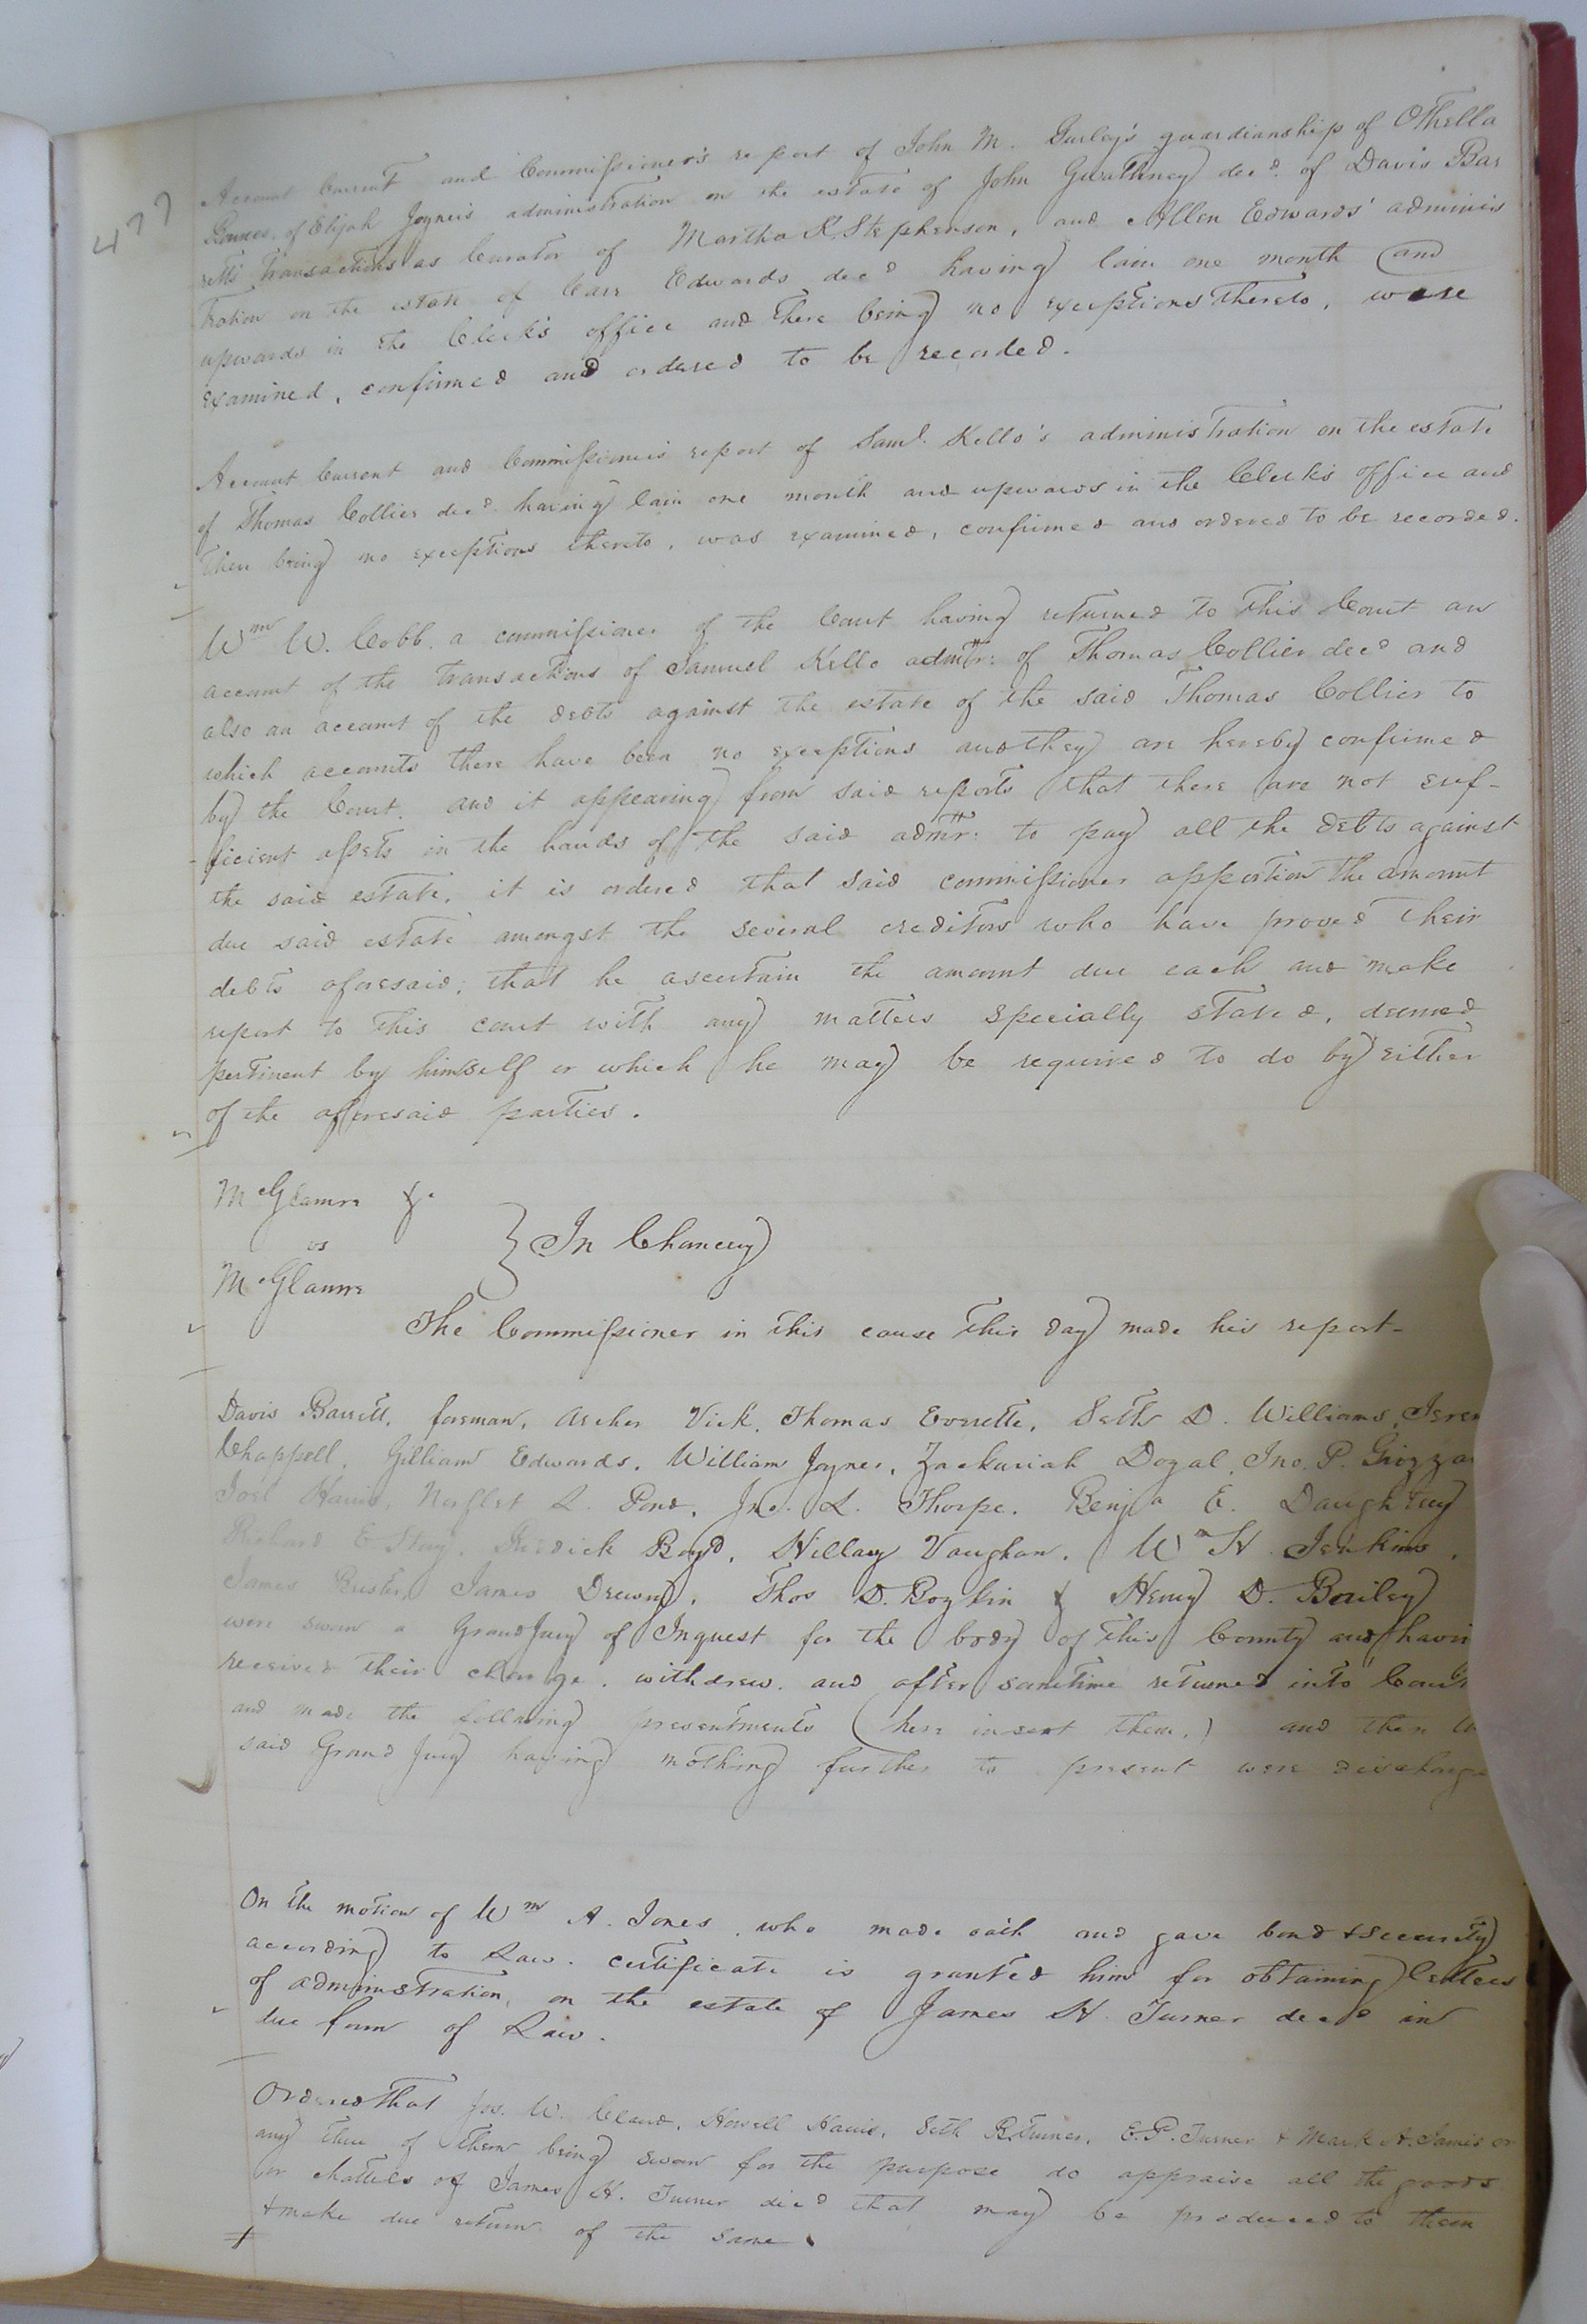 477
Account Current and Commissioner's report of John M. Gurley's guardianship of Othella
of Elijah Joyner's administration on the estate of John Gwathney decd. of Davis Bar
rett's transactions as Curator of Martha R. Stephenson, and Allen Edwards' adminis
tration on the estate of Carr Edwards decd having lain one month and
upwards in the Clerk's office and there being no exceptions thereto, were
examined, confirmed and ordered to be recorded.
Account Current and Commissioners report of Saml. Kello's administration on the estate
of Thomas Collier decd. having lain one month and upwards in the Clerk's office and
there being no exceptions thereto, was examined, confirmed and ordered to be recorded.
Wm W. Cobb, a commissioner of the Court having returned to this Court an
account of the transactions of Samuel Kello admtr: of Thomas Collier decd and
also an account of the debts against the estate of the said Thomas Collier to
which accounts there have been no exceptions and they are hereby confirmed
by the Court. and it appearing from said reports that there are not suf-
ficient assets in the hands of the said admr: to pay all the debts against
the said estate, it is ordered that said commissioner apportion the amount
due said estate amongst the several creditors who have proved their
debts aforesaid; that he ascertain the amount due each and make
report to this court with any matters specially stated, deemed
pertinent by himself or which he may be required to do by either
of the aforesaid parties.
McGlamre &.
vs
} In Chancery
McGlamre
The Commissioner in this cause this day made his report-
Davis Barrett, foreman, Archer Vick, Thomas Everette, Seth D. Williams, Jerem
Chappell, Gilliam Edwards, William Joyner, Zackariah Dogal, Jno. P. Grizza
Joel Harris, Norflet R. Pond, Jno. L. Thorpe, Benja E. Daughtrey
Richard E Hay, Burdick Boyd, Hillary Vaughan, Wm H. Jenkins,
James Drewry, Thos D. Boykin & Henry D. Bailey
were sworn a Grand Jury of Inquest for the body of this County and havin
received their charge, withdrew, and after sometime returned into Court
and made the following presentments (here insert them.) and then th
said Grand Jury having nothing further to present were discharge
On the motion of Wm A. Jones, who made oath and gave bond & security
according to Law. certificate is granted him for obtaining letters
of administration, on the estate of James H. Turner decd in
due form of Law.
Ordered that Jos. W. Claud, Howell Harris, Seth R. Turner, E. P. Turner & Mark H. James or
any three of them being sworn for the purpose do appraise all the goods
or chattels of James H. Turner decd that may be produced to them
& make due return of the same.